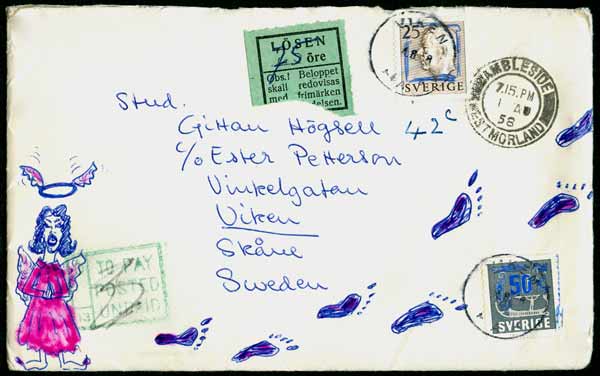 LÖSEN
25 öre
Obs.! Beloppet
skall redovisas
med frimärken
25
SVERIGE
VIKEN
AMBLESIDE
7.15.PM
1 AU
58
WESTMORLAND
Stud.
Gittan Högsell
42c
c/o Ester Petterson
Vinkelgatan
Viken
Skåne
Sweden
TO PAY
POSTED
UNPAID
50
SVERIGE